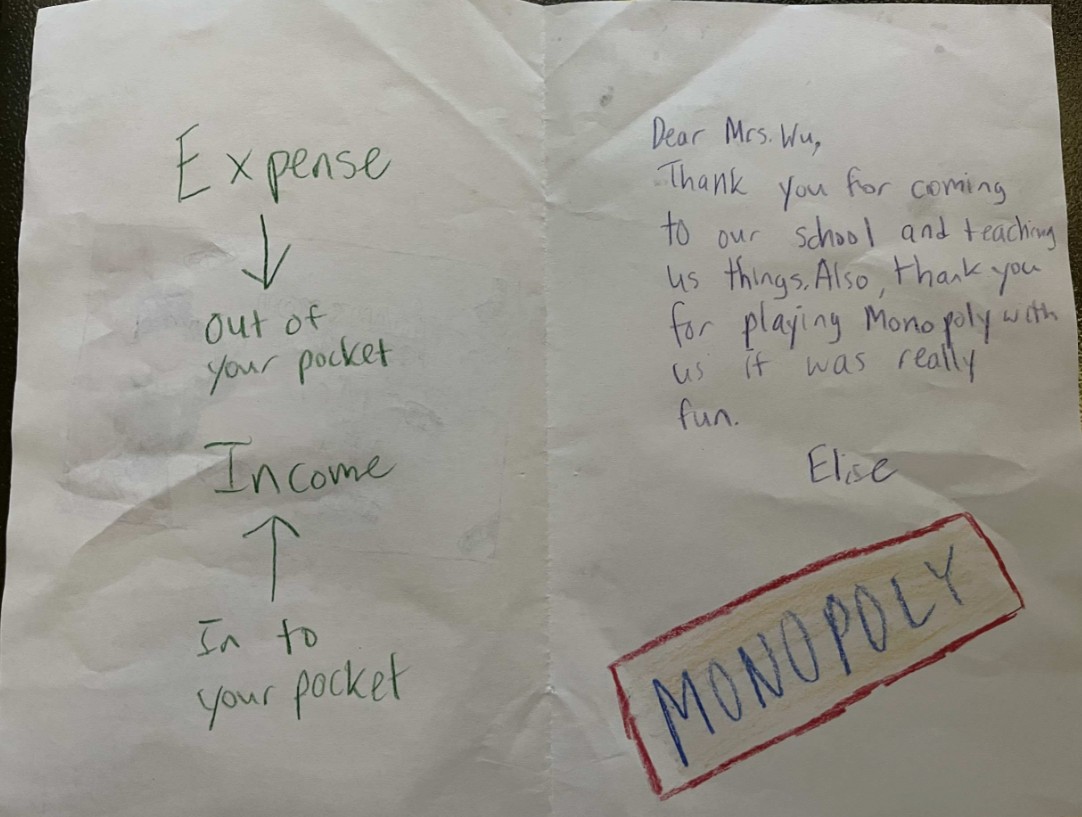 Expense
out of
your pocket
Income
In to
your pocket
Dear Mrs. Wu,
Thank you for coming
to our school and teaching
us things. Also, thank you
for playing Monopoly with
us it was really
fun.
Elise
MONOPOLY